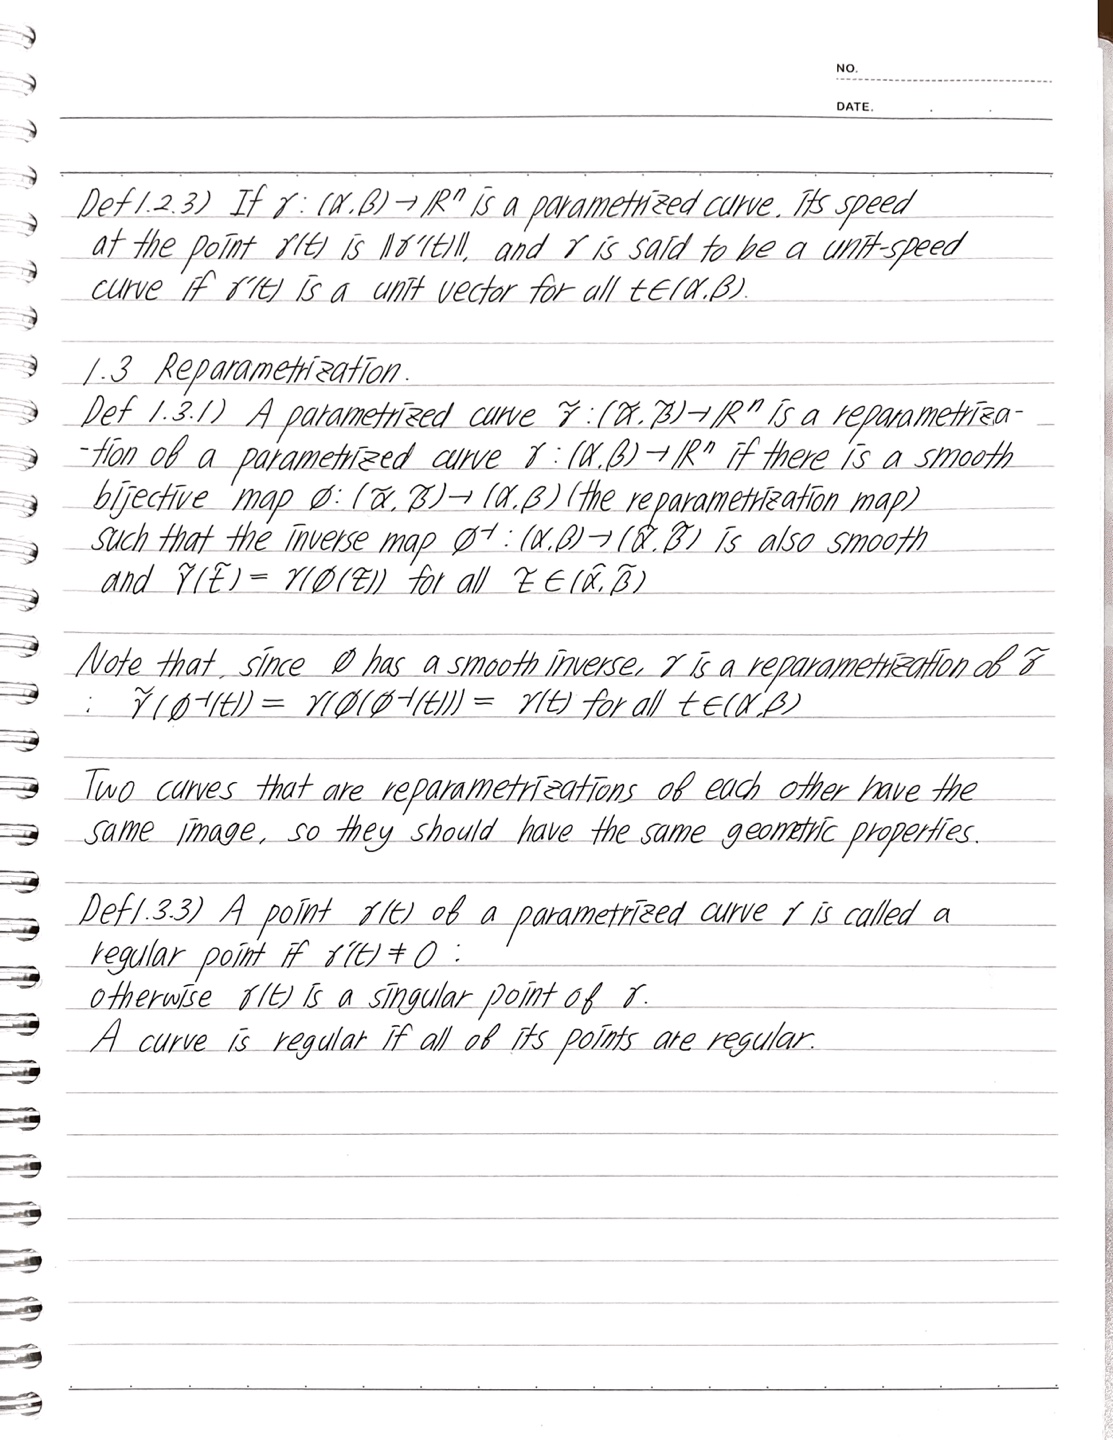 NO.
DATE. . .
Def 1.2.3) If γ : (α, β) → ℝⁿ is a parametrized curve, its speed
at the point γ(t) is ‖γ'(t)‖, and γ is said to be a unit-speed
curve if γ'(t) is a unit vector for all t∈(α, β).
1.3 Reparametrization.
Def 1.3.1) A parametrized curve γ̃ : (α̃, β̃) → ℝⁿ is a reparametriza-
-tion of a parametrized curve γ : (α, β) → ℝⁿ if there is a smooth
bijective map ∅ : (α̃, β̃) → (α, β) (the reparametrization map)
such that the inverse map ∅⁻¹ : (α, β) → (α̃, β̃) is also smooth
and γ̃(t̃) = γ(∅(t̃)) for all t̃ ∈ (α̃, β̃)
Note that, since ∅ has a smooth inverse, γ is a reparametrization of γ̃
: γ̃(∅⁻¹(t)) = γ(∅(∅⁻¹(t))) = γ(t) for all t∈(α, β)
Two curves that are reparametrizations of each other have the
same image, so they should have the same geometric properties.
Def 1.3.3) A point γ(t) of a parametrized curve γ is called a
regular point if γ'(t) ≠ 0 :
otherwise γ(t) is a singular point of γ.
A curve is regular if all of its points are regular.